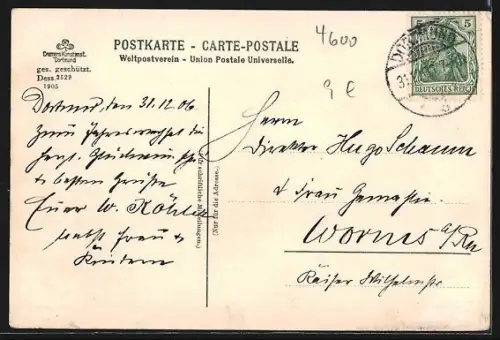 Cramers Kunstanst.
Dortmund
ges. geschützt.
Dess. 2529
1905
POSTKARTE - CARTE-POSTALE
Weltpostverein - Union Postale Universelle.
4600
9 €
5
DEUTSCHES REICH
DORTMUND
31.
Dortmund, den 31.12.06
Zum Jahreswechsel die
herzl. Glückwünsche
& besten Grüße
Euer W. Köhler
nebst Frau &
Kindern
(Für schriftliche Mitteilungen.)
(Nur für die Adresse.)
Herrn
Direktor Hugo Schaum
& Frau Gemahlin
Worms a/Rh
Kaiser Wilhelmstr